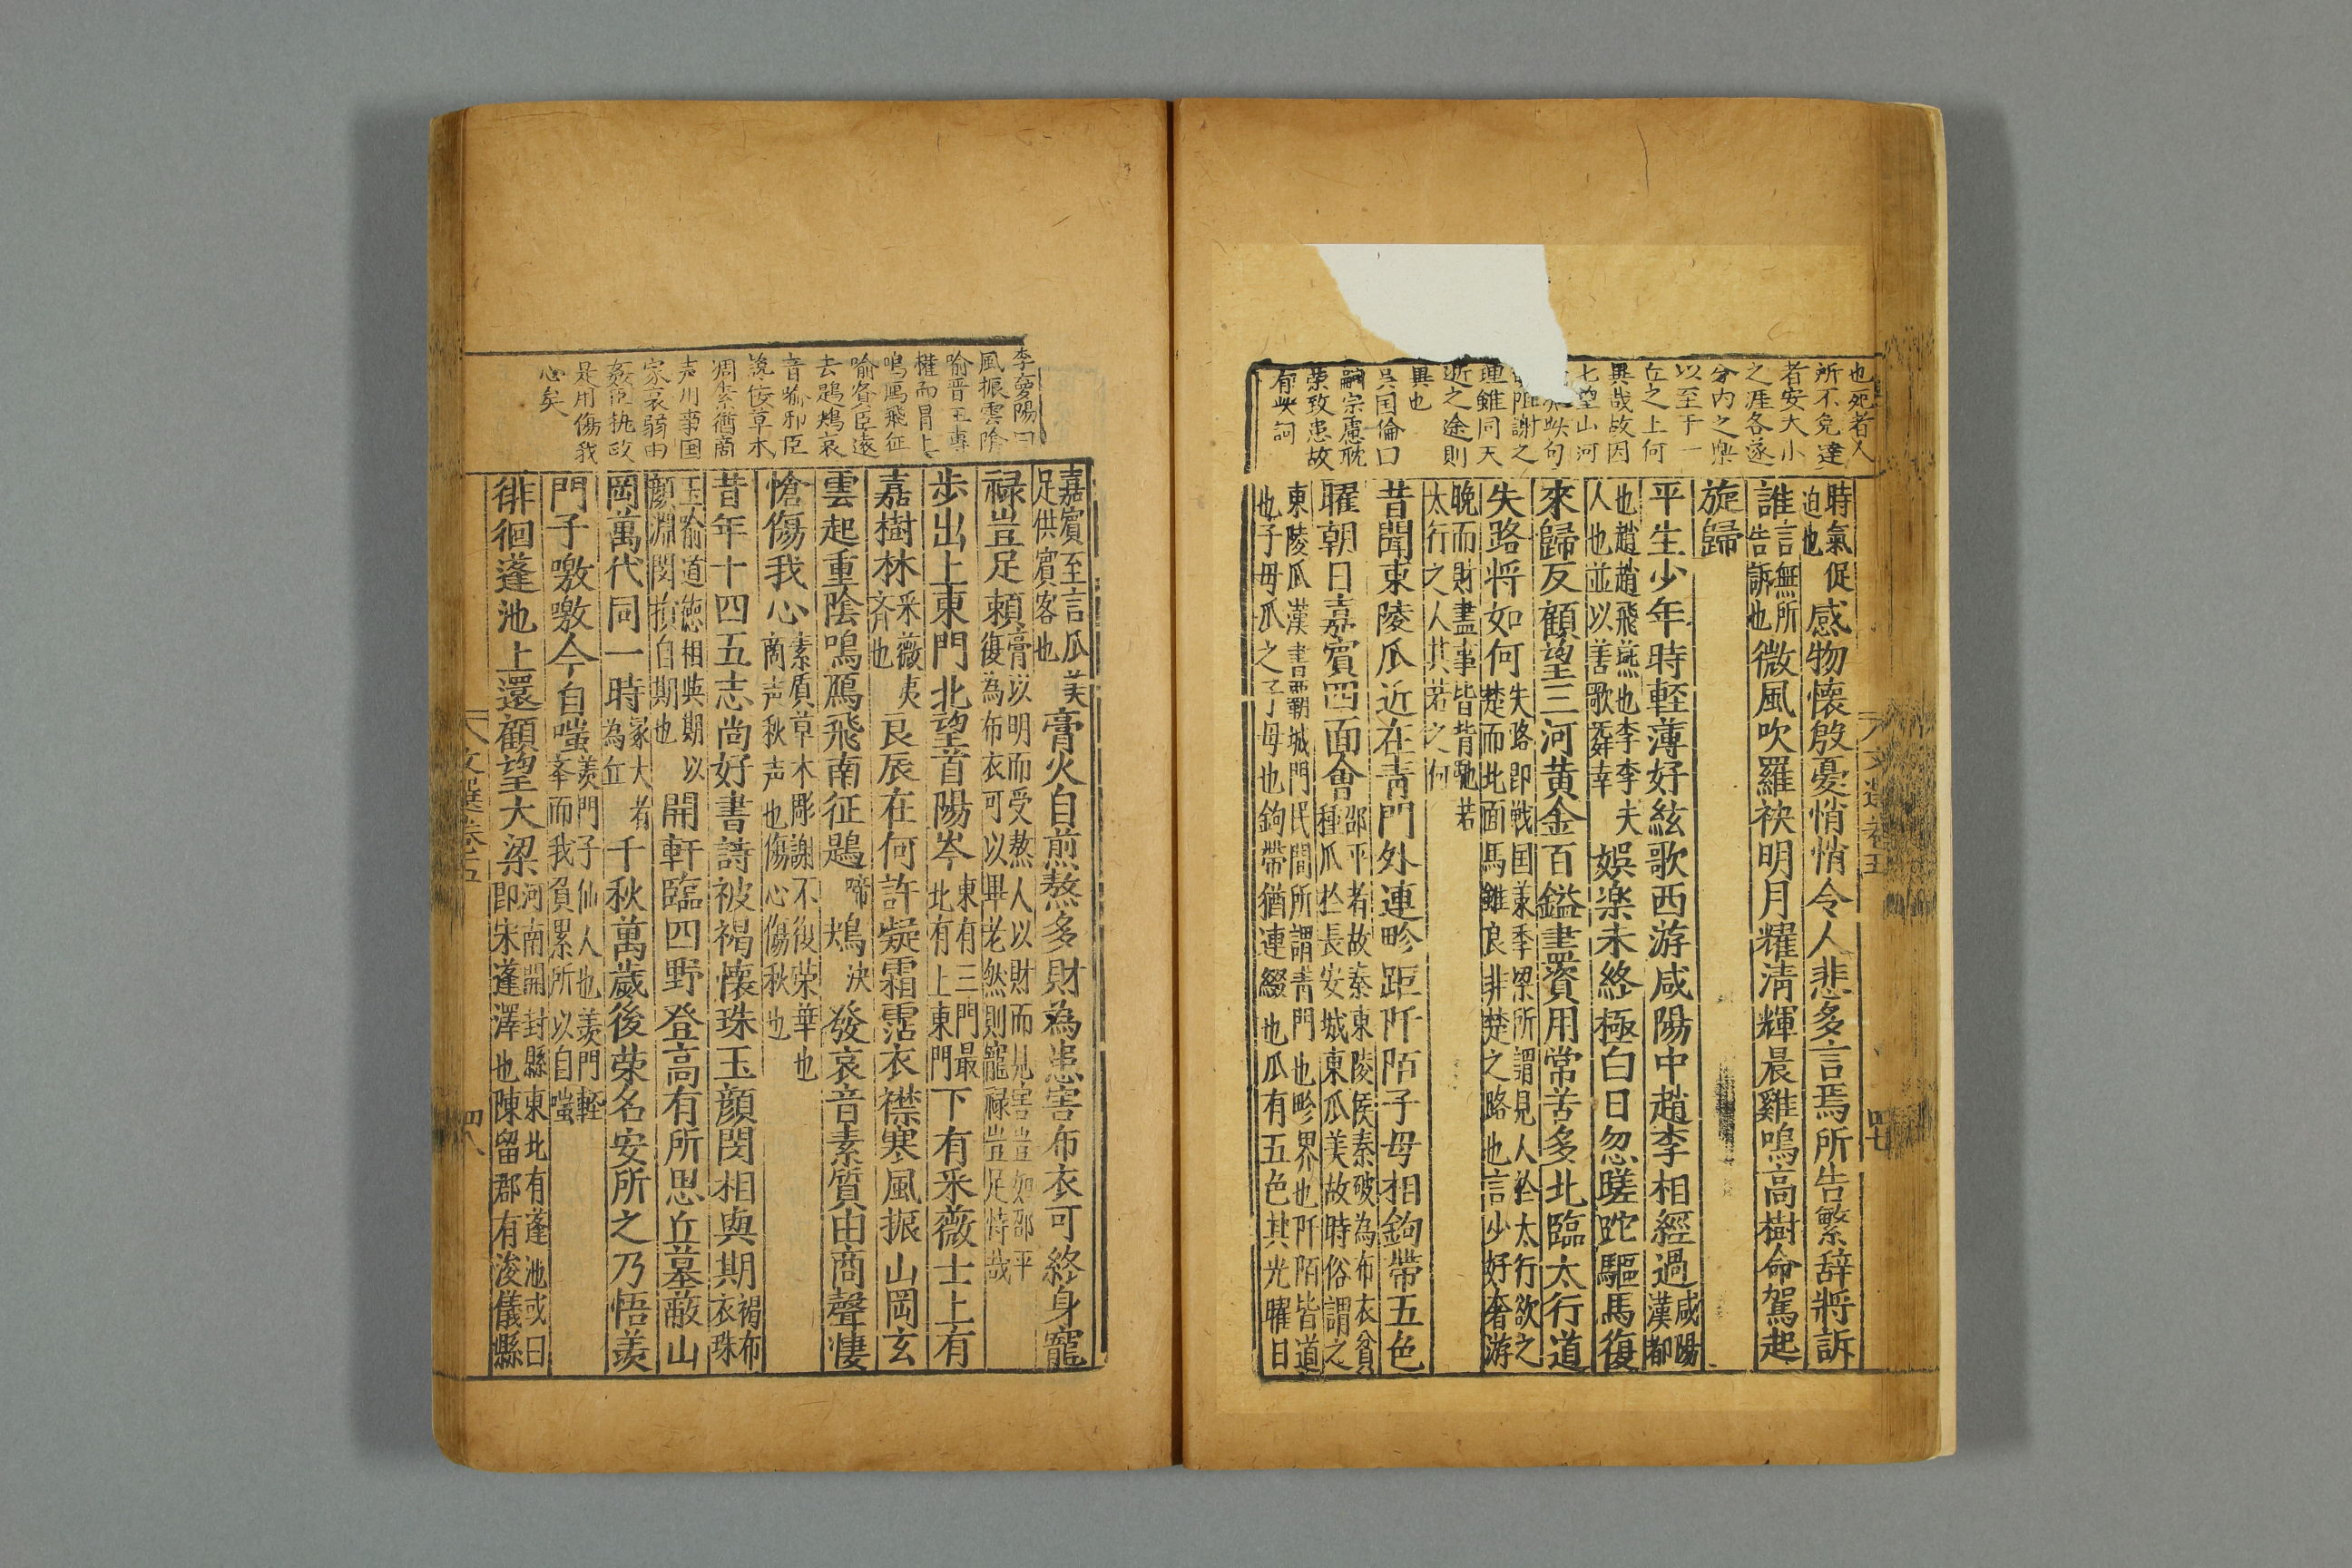 也死者人
所不免達
者安大小
之涯各遂
分內之樂
以至于一
丘之上何
異哉故因
七望山河
此句
阻謝之
理雖同天
逝之途則
異也
吳国倫曰
嗣宗慮耽
荣致患故
有此詞
時氣促
迫也
感物懷殷憂悄悄令人悲多言焉所告繁辞將訴
誰
言無所
告訴也
微風吹羅袂明月耀清輝晨雞鳴高樹命駕起
旋歸
平生少年時軽薄好絃歌西游咸陽中趙李相經過
咸陽
漢都
也趙趙飛燕也李李夫
人也並以善歌舞幸
娛楽未終極白日忽蹉跎驅馬復
來歸反顧望三河黄金百鎰盡資用常苦多北臨太行道
失路将如何
失路即戦国策季梁所謂見人於太行欲之
楚而北面馬雖良非楚之路也言少好奢游
晚而財盡事皆背馳若
太行之人其若之何
昔聞東陵瓜近在青門外連畛距阡陌子母相鉤帶五色
曜朝日嘉賓四面會
邵平者故秦東陵侯秦破為布衣貧
種瓜於長安城東瓜美故時俗謂之
東陵瓜漢書霸城門民間所謂青門也畛界也阡陌皆道
也子母瓜之子母也鉤帶猶連綴也瓜有五色其光曜日
文選卷五
四七
李夢陽曰
風振雲陰
喻晋王專
權而冒上
鳴鴈飛征
喻賢臣遠
去鶗鴂哀
音喻邪臣
說佞草木
凋素猶商
声用事国
家衰弱由
姦臣執政
是用傷我
心矣
嘉賓至言瓜美
足供賓客也
膏火自煎熬多財為患害布衣可終身寵
禄豈足頼
膏以明而受熬人以財而見害豈如邵平
復為布衣可以畢老然則寵禄豈足恃哉
歩出上東門北望首陽岑
東有三門最
北有上東門
下有采薇士上有
嘉樹林
采薇夷
齐也
良辰在何許凝霜霑衣襟寒風振山岡玄
雲起重陰鳴鴈飛南征鶗
啼
鴂
决
發哀音素質由商聲悽
愴傷我心
素質草木彫謝不復荣華也
商声秋声也傷心傷秋也
昔年十四五志尚好書詩被褐懷珠玉顔閔相與期
褐布
衣珠
玉喻道德相與期以
顔淵閔損自期也
開軒臨四野登高有所思丘墓蔽山
岡萬代同一時
冢大者
為丘
千秋萬歲後荣名安所之乃悟羨
門子噭噭今自嗤
羨門子仙人也羨門軽
𠦑而我負累所以自嗤
徘徊蓬池上還顧望大梁
河南開封縣東北有蓬池或曰
即宋蓬澤也陳留郡有浚儀縣
文選卷五
四八